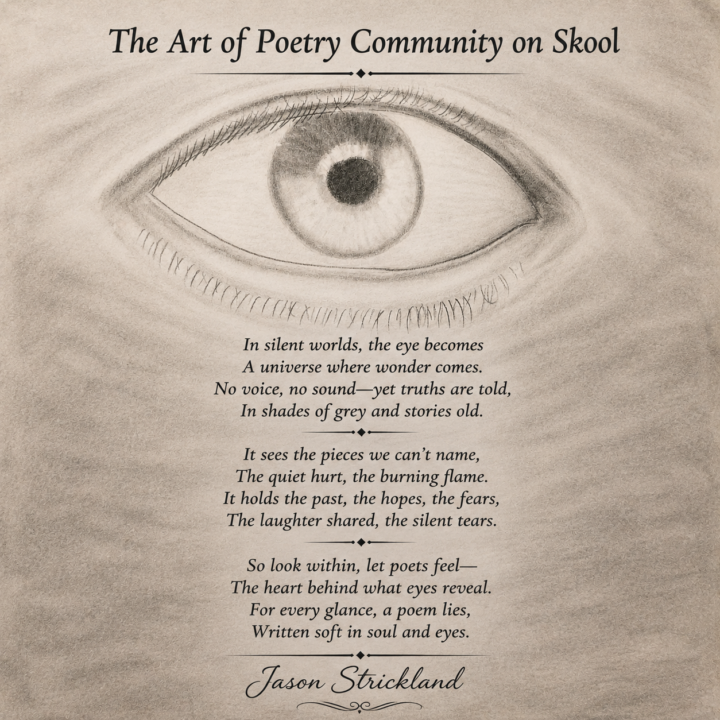 The Art of Poetry Community on Skool
In silent worlds, the eye becomes
A universe where wonder comes.
No voice, no sound—yet truths are told,
In shades of grey and stories old.
It sees the pieces we can’t name,
The quiet hurt, the burning flame.
It holds the past, the hopes, the fears,
The laughter shared, the silent tears.
So look within, let poets feel—
The heart behind what eyes reveal.
For every glance, a poem lies,
Written soft in soul and eyes.
Jason Strickland